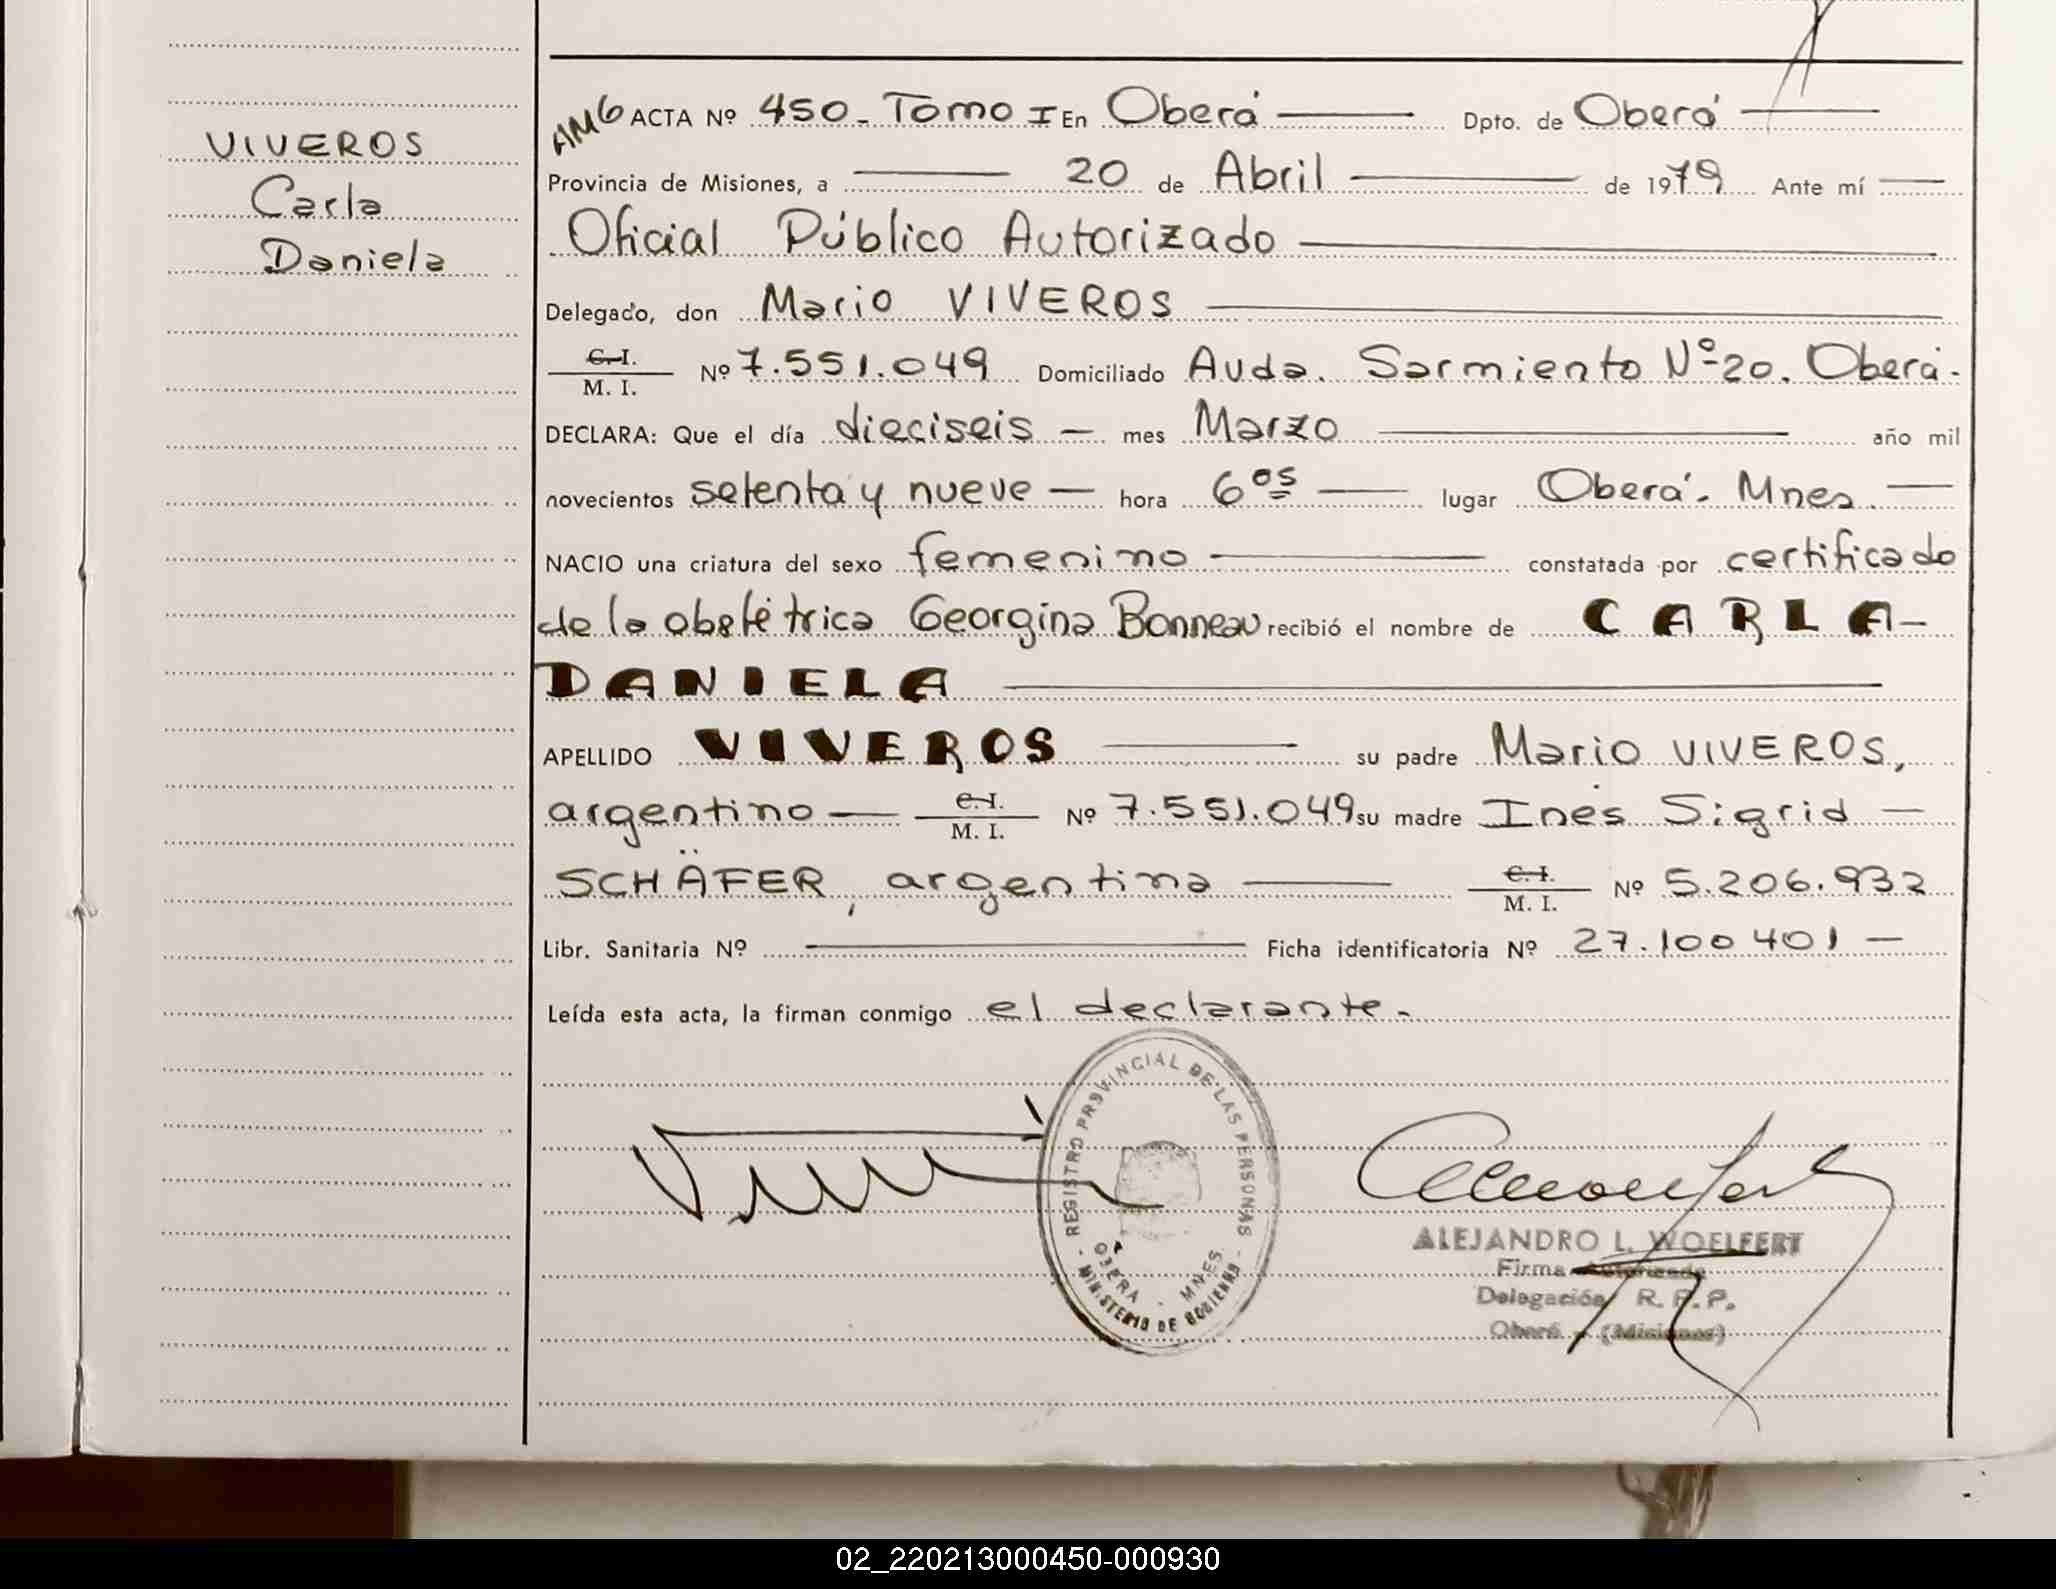 VIVEROS
Carla
Daniela
AMG ACTA Nº 450. Tomo I En Oberá Dpto. de Oberá
Provincia de Misiones, a 20 de Abril de 1979 Ante mí
Oficial Público Autorizado
Delegado, don Mario VIVEROS
C. I.
M. I. Nº 7.551.049 Domiciliado Avda. Sarmiento Nº 20. Oberá.
DECLARA: Que el día dieciseis mes Marzo año mil
novecientos setenta y nueve hora 6 05 lugar Oberá. Mnes.
NACIO una criatura del sexo femenino constatada por certificado
de la obstétrica Georgina Bonneau recibió el nombre de CARLA
DANIELA
APELLIDO VIVEROS su padre Mario VIVEROS,
argentino C. I. M. I. Nº 7.551.049 su madre Inés Sigrid
SCHÄFER, argentina C. I. M. I. Nº 5.206.932
Libr. Sanitaria Nº Ficha identificatoria Nº 27.100401
Leída esta acta, la firman conmigo el declarante.
REGISTRO PROVINCIAL DE LAS PERSONAS
OBERA - MNES
MINISTERIO DE GOBIERNO
ALEJANDRO L. WOELFERT
Firma Autorizada
Delegación R. P. P.
Oberá - (Misiones)
02_220213000450-000930